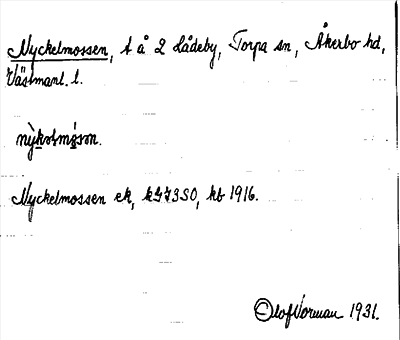 Nyckelmossen, t å 2 Lådeby, Torpa sn, Åkerbo hd,
Västmanl. l.
Nyckelmossen ek, kb 1916.
Olof Vorman 1931.